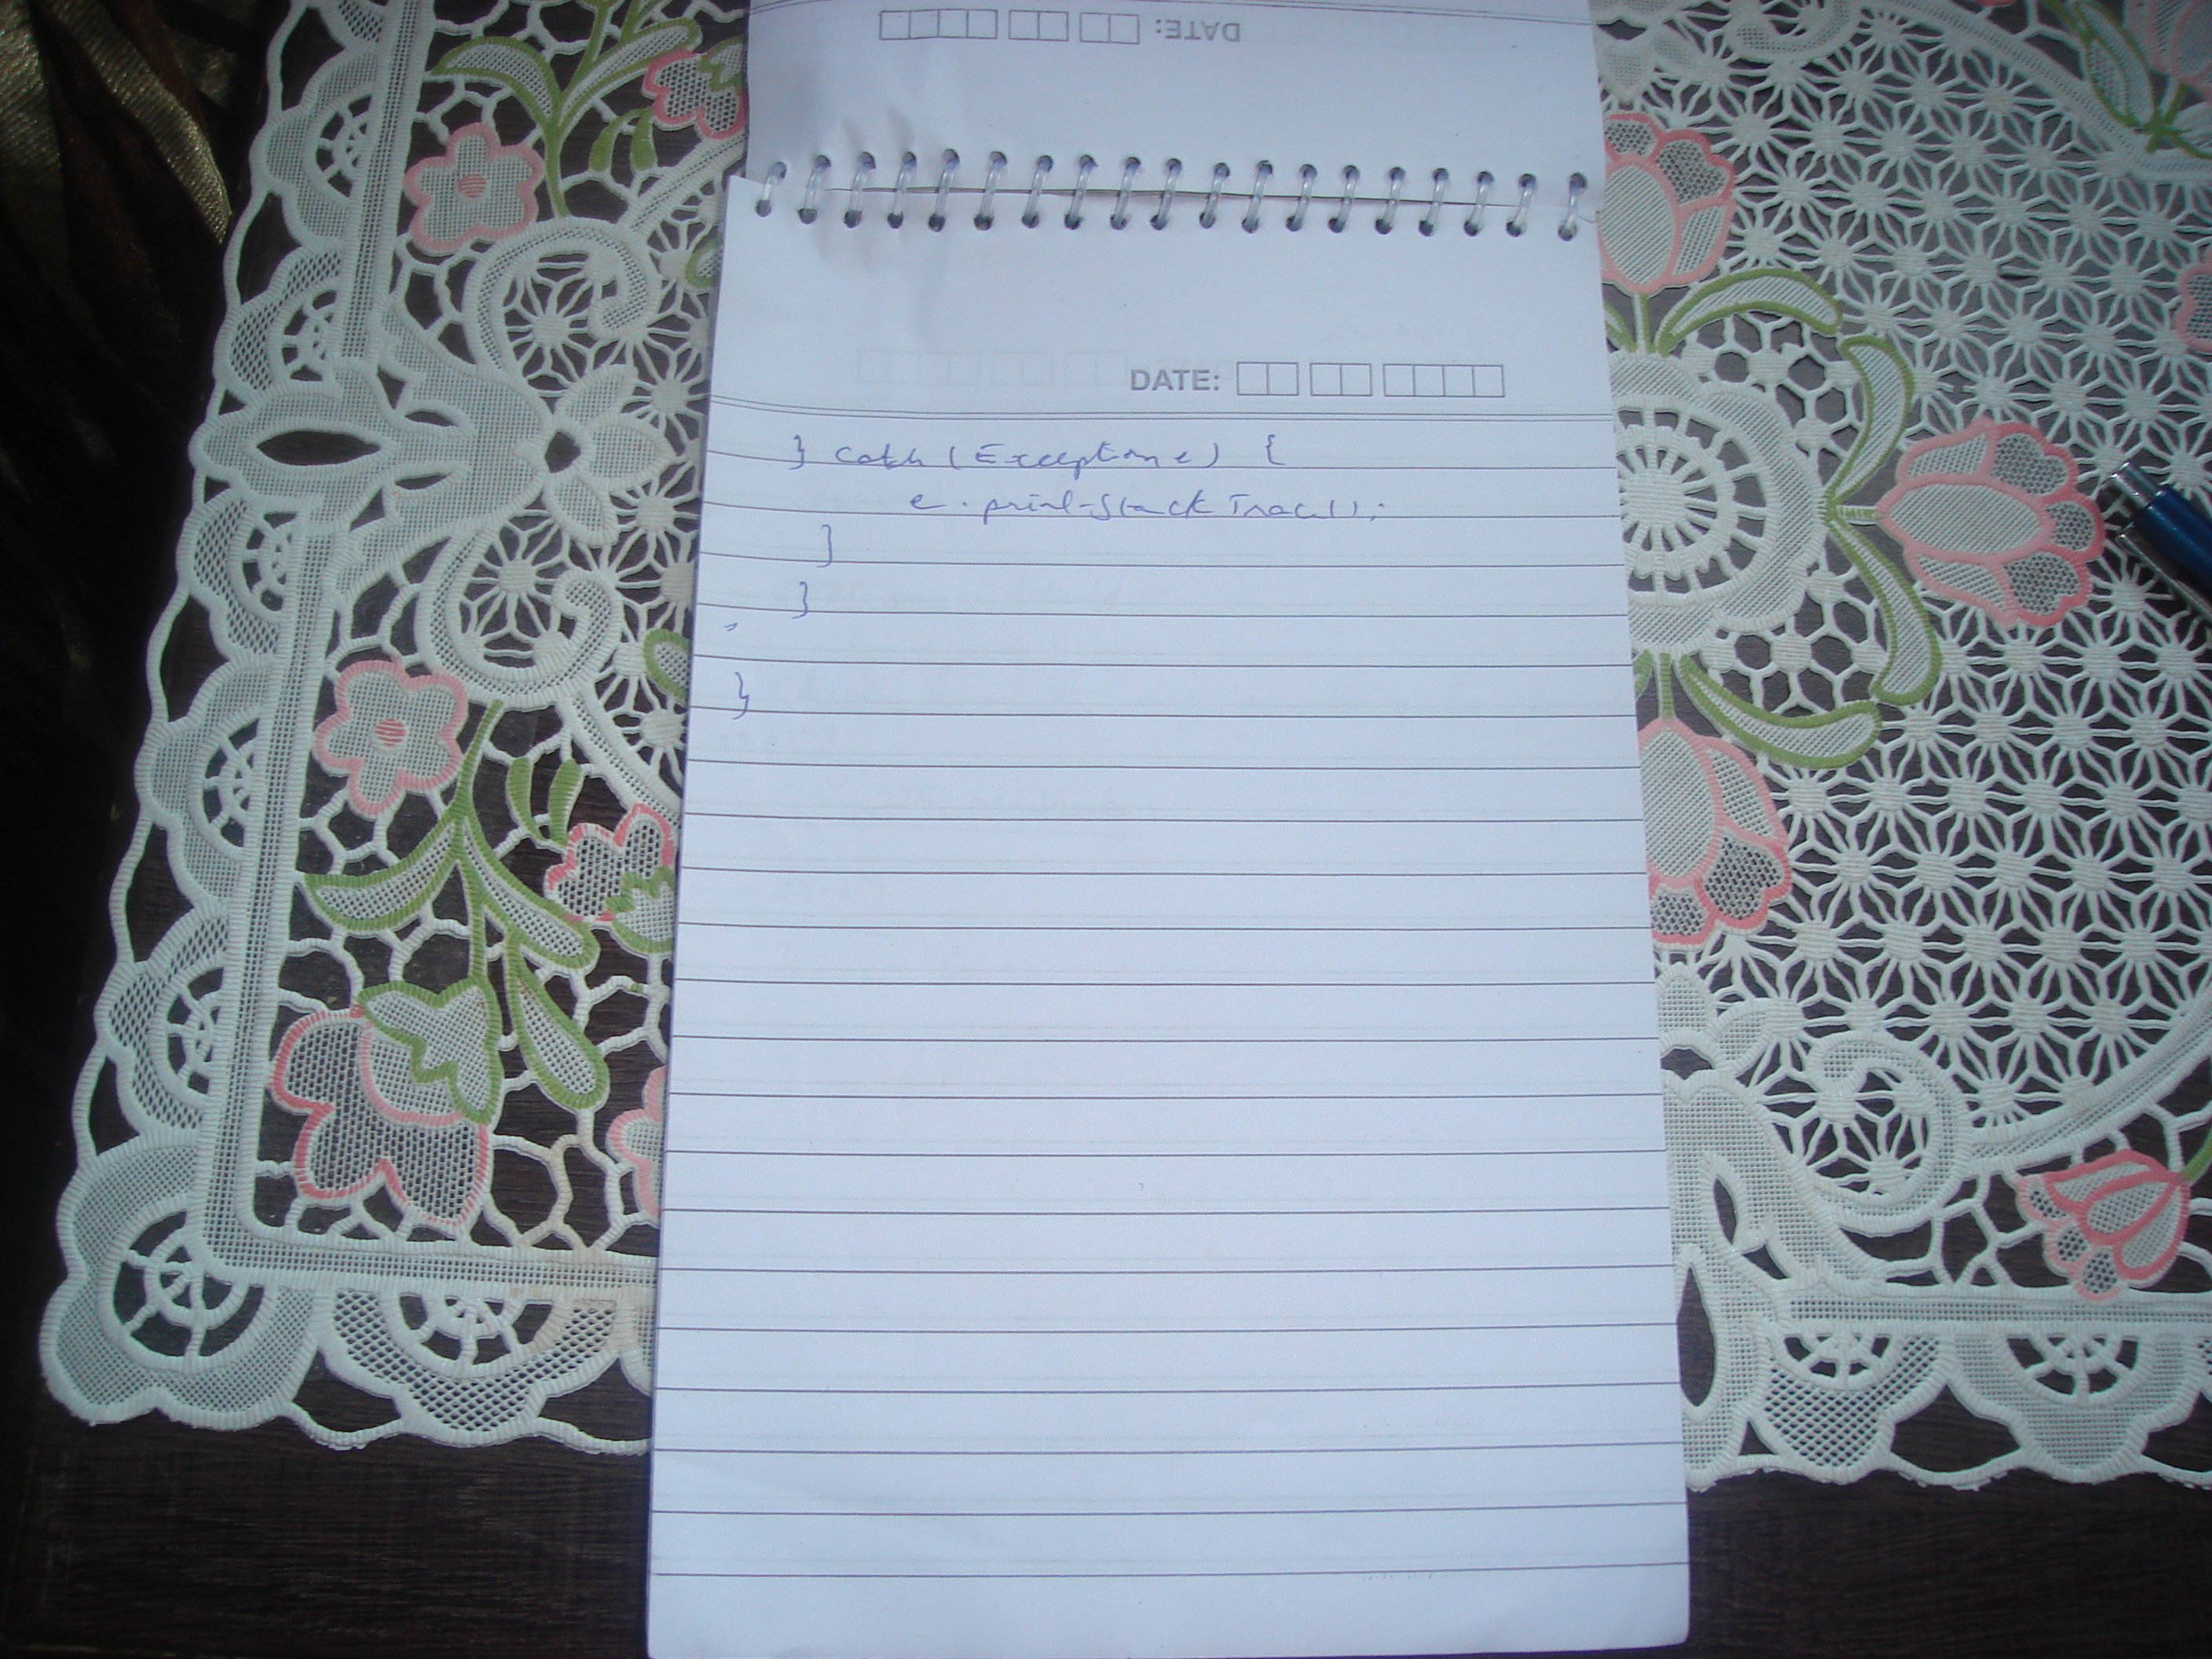 DATE:
DATE:
} catch (Exception e) {
e.printStackTrace();
}
}
}